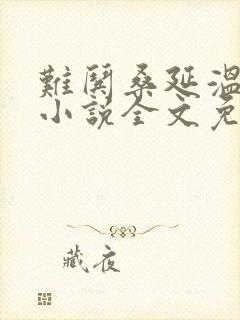 難鬨桑延溫
小說全文免
藏夜